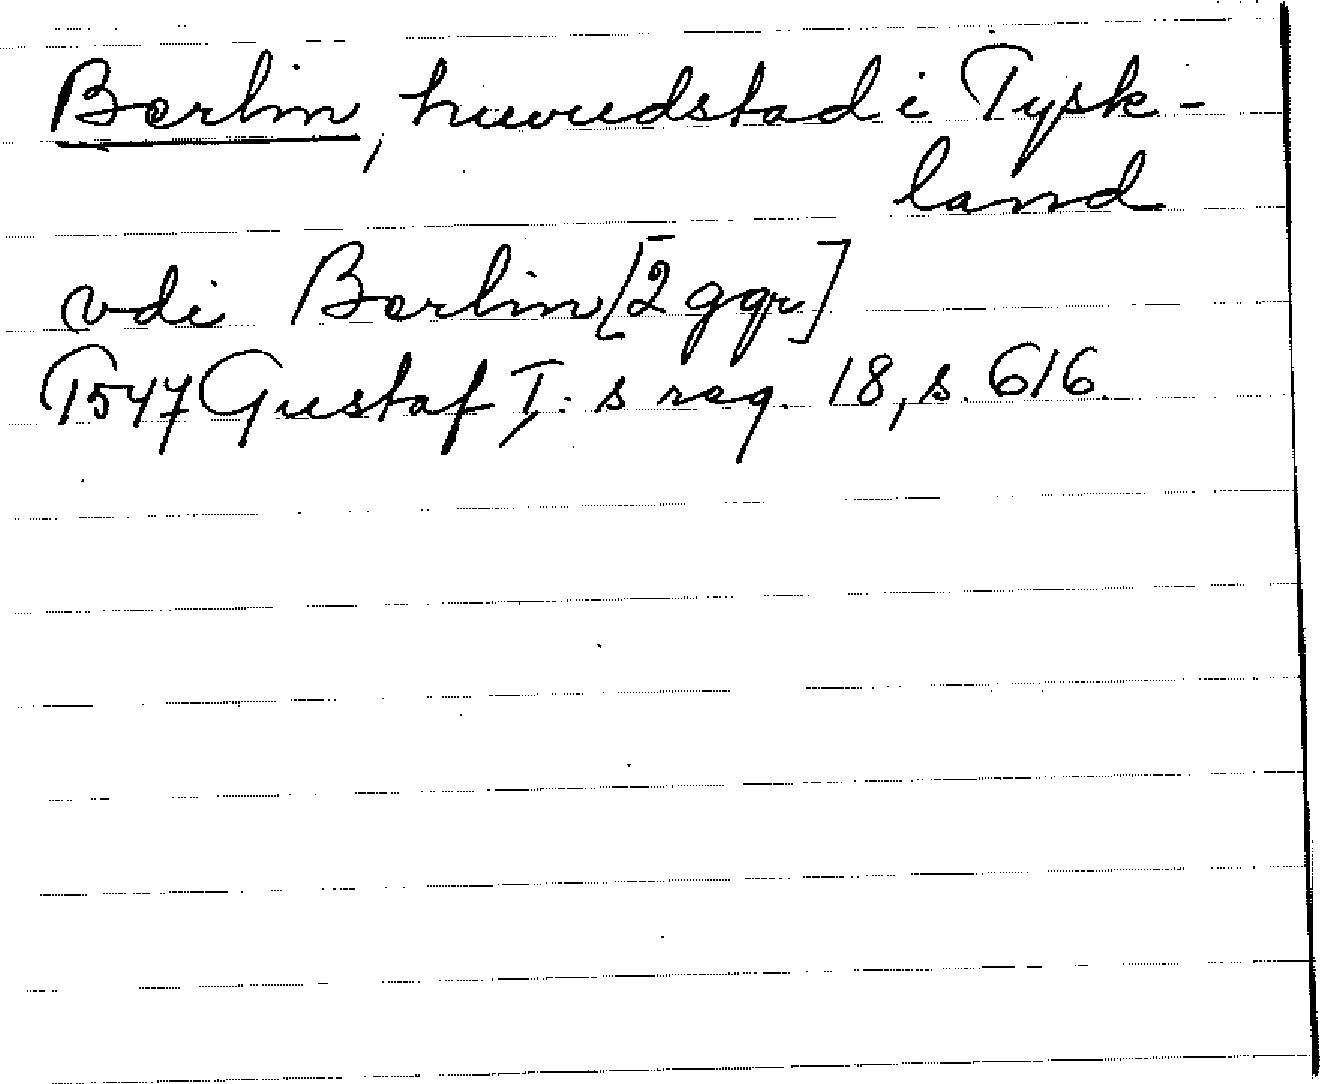 Berlin, huvudstad i Tysk-
land
vdi Berlin [2 ggr]
1547 Gustaf I:s reg. 18, s. 616.